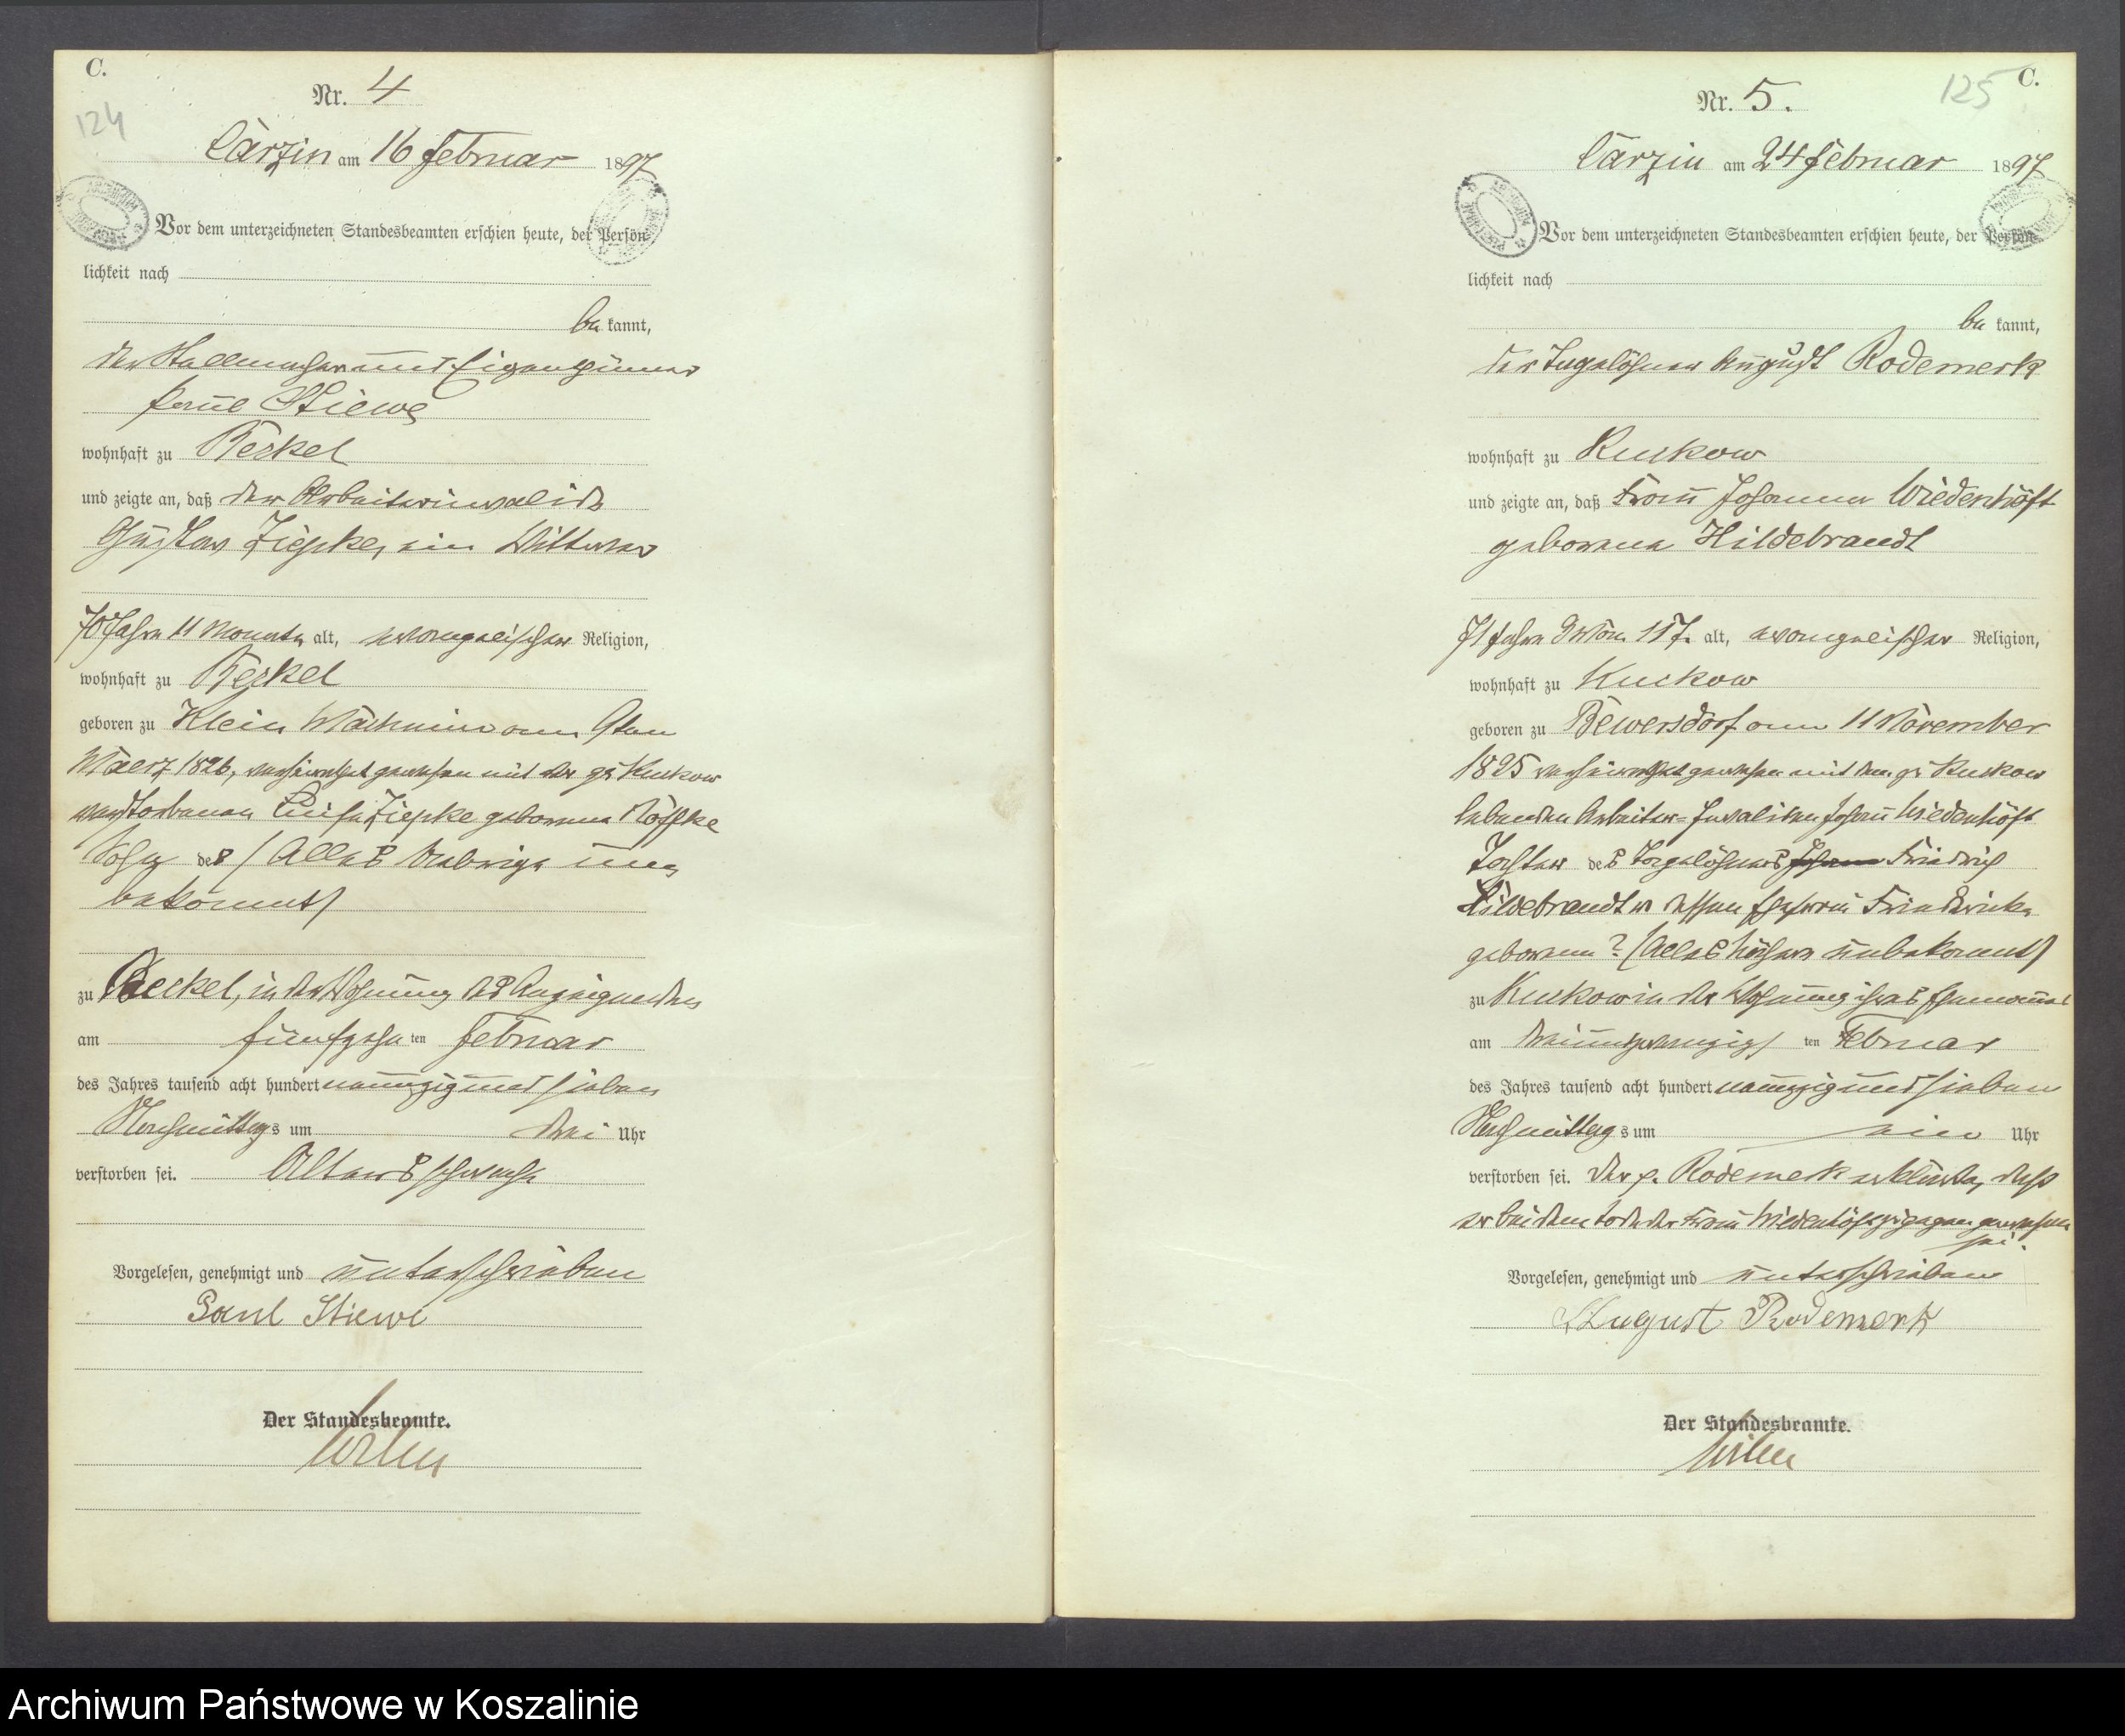 C.
124
Nr. 4
Carzin am 16 Februar 1897
Vor dem unterzeichneten Standesbeamten erschien heute, der Persön-
lichkeit nach
be kannt,
der Stellmacher und Eigenthümer
Paul Stiewe
wohnhaft zu Reckel
und zeigte an, daß der Arbeiterinvalide
Gustav Ziepke, ein Wittwer
70 Jahre 11 Monate alt, evangelischer Religion,
wohnhaft zu Reckel
geboren zu Klein Machmin am 9ten
Maerz 1826, verheirathet gewesen mit der zu Kuckow
verstorbenen Luise Ziepke geborene
Sohn des (Alles Uebrige un
bekannt)
zu Reckel, in der Wohnung des Anzeigenden
am fünfzehn ten Februar
des Jahres tausend acht hundert neunzig und sieben
Nachmittags um drei Uhr
verstorben sei. Altersschwäche
Vorgelesen, genehmigt und unterschrieben
Paul Stiewe
Der Standesbeamte.
C.
125
Nr. 5.
Carzin am 24 Februar 1897
Vor dem unterzeichneten Standesbeamten erschien heute, der Persön-
lichkeit nach
be kannt,
der Tagelöhner August Rodemerk
wohnhaft zu Kuckow
und zeigte an, daß Frau Johanna Wiedenhöft
geborene Hildebrandt
71 Jahre 3 Mon. 11 T. alt, evangelischer Religion,
wohnhaft zu Kuckow
geboren zu Bewersdorf am 11 November
1825 verheirathet gewesen mit dem zu Kuckow
lebenden Arbeiter-Invaliden Johann Wiedenhöft
Tochter des Tagelöhners Johann Friedrich
Hildebrandt u dessen Ehefrau Friederike
geborene ? (Alles Nähere unbekannt)
zu Kuckow in der Wohnung ihres Ehemannes
am dreiundzwanzig ten Februar
des Jahres tausend acht hundert neunzig und sieben
Nachmittag s um ein Uhr
verstorben sei. Der p. Rodemerk erklärte, daß
er bei dem Tode der Frau Wiedenhöft zugegen gewesen
sei.
Vorgelesen, genehmigt und unterschrieben
August Rodemerk
Der Standesbeamte.
Archiwum Państwowe w Koszalinie